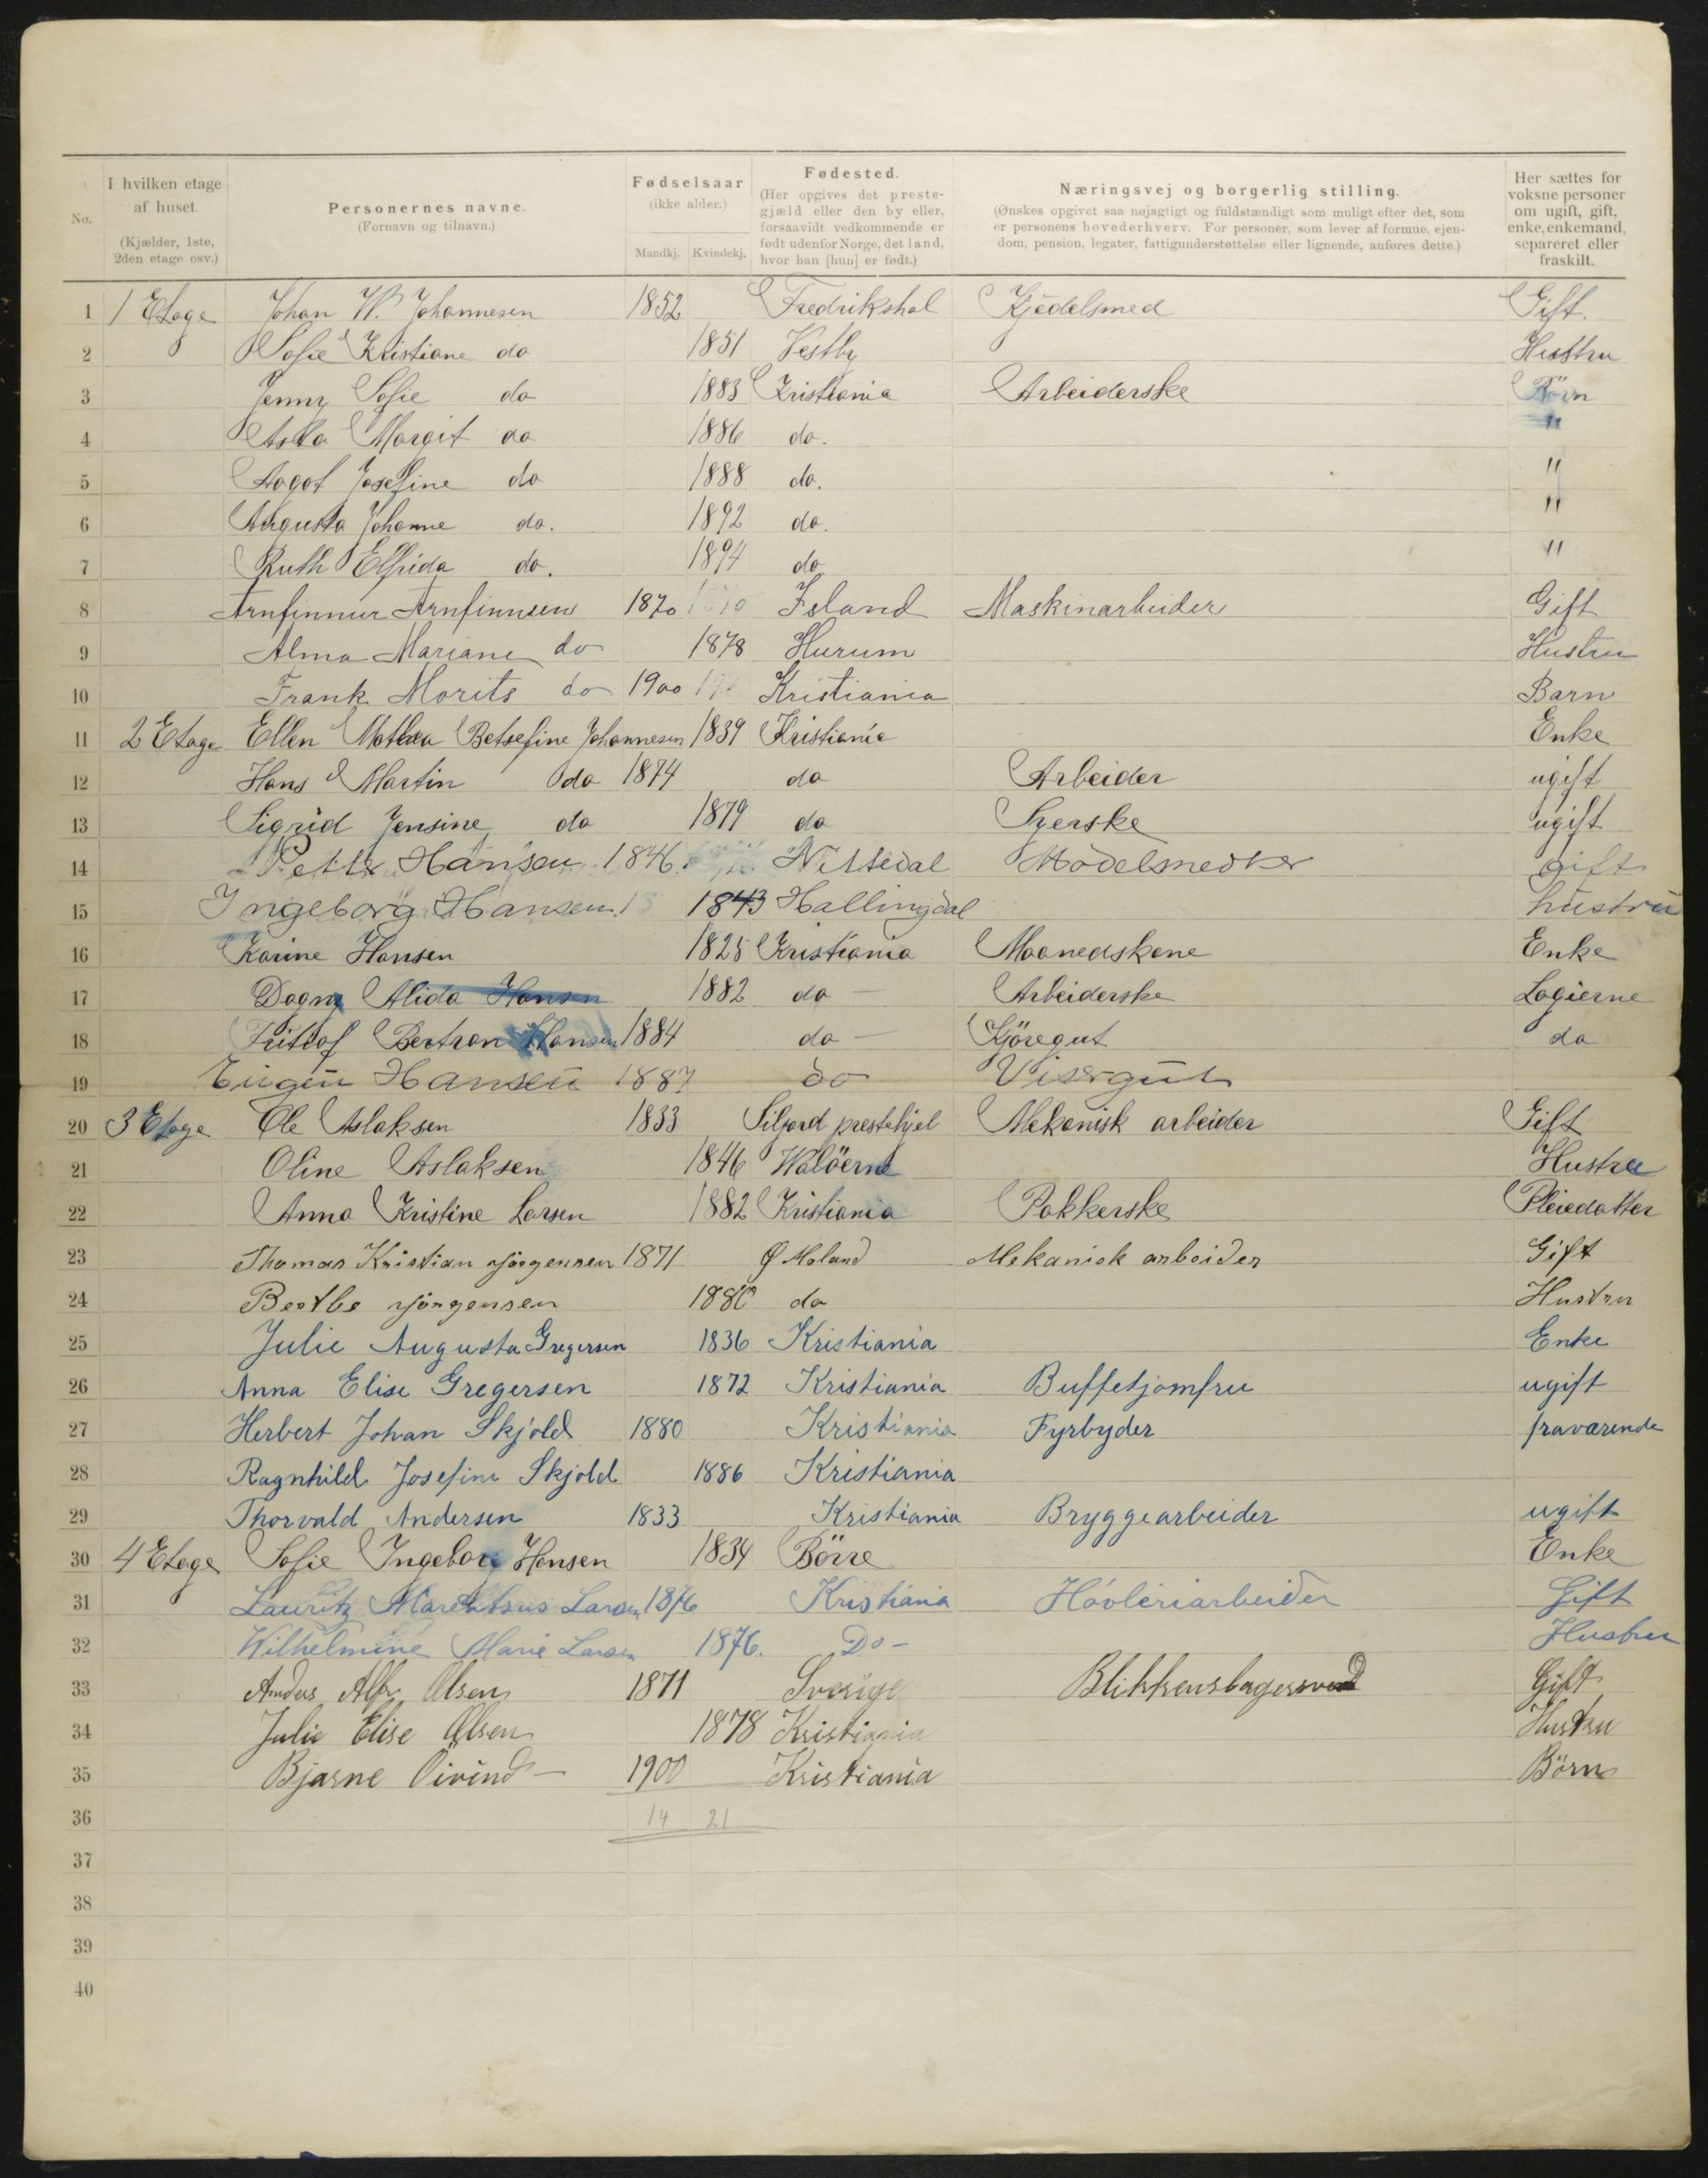 No. I hvilken etage af huset. (Kjælder, 1ste, 2den etage osv.) Personernes navne. (Fornavn og tilnavn.) Fødselsaar (ikke alder.) Mandkj. Kvindekj. Fødested. (Her opgives det prestegjæld eller den by eller, forsaavidt vedkommende er født udenfor Norge, det land, hvor han [hun] er født.) Næringsvej og borgerlig stilling. (Ønskes opgivet saa nøjagtigt og fuldstændigt som muligt efter det, som er personens hovederhverv. For personer, som lever af formue, ejendom, pension, legater, fattigunderstøttelse eller lignende, anføres dette.) Her sættes for voksne personer om ugift, gift, enke, enkemand, separeret eller fraskilt.
1 1 Etage Johan W. Johannesen 1852 Fredrikshal Kjedelsmed Gift.
2 Sofie Kristiane do 1851 Vestby Hustru
3 Jenny Sofie do 1883 Kristiania Arbeiderske Börn
4 Asta Margit do 1886 do. "
5 Aagot Josefine do 1888 do. "
6 Augusta Johanne do. 1892 do. "
7 Ruth Elfrida do. 1894 do "
8 Arnfinnur Arnfinnsen 1870 Island Maskinarbeider Gift
9 Alma Mariane do 1878 Hurum Hustru
10 Frank Morits do 1900 Kristiania Barn
11 2 Etage Ellen Mathea Betsefine Johannesen 1839 Kristiania Enke
12 Hans Martin do 1874 do Arbeider ugift
13 Sigrid Jensine do 1879 do Syerske ugift
14 Petter Hansen 1846 Nittedal Modelsnedker gift
15 Ingeborg Hansen 1843 Hallingdal hustru
16 Karine Hansen 1825 Kristiania Maanedskone Enke
17 Dagny Alida Hansen 1882 do — Arbeiderske Logierne
18 Fritiof Bertran Hansen 1884 do — Kjöregut do
19 Eugen Hansen 1887 do Visergut
20 3 Etage Ole Aslaksen 1833 Siljord prestehjel Mekanisk arbeider Gift
21 Oline Aslaksen 1846 Walöerne Hustru
22 Anna Kristine Larsen 1882 Kristiania Pakkerske Pleiedatter
23 Thomas Kristian Jörgensen 1871 Ø Moland Mekanisk arbeider Gift
24 Berthe Jörgensen 1880 do Hustru
25 Julie Augusta Gregersen 1836 Kristiania Enke
26 Anna Elise Gregersen 1872 Kristiania Buffetjomfru ugift
27 Herbert Johan Skjold 1880 Kristiania Fyrbyder fraværende
28 Ragnhild Josefine Skjold 1886 Kristiania
29 Thorvald Andersen 1833 Kristiania Bryggearbeider ugift
30 4 Etage Sofie Ingeborg Hansen 1834 Börre Enke
31 Lauritz Larsen 1876 Kristiania Hövleriarbeider Gift
32 Wilhelmine Marie Larsen 1876. Do - Hustru
33 Anders Alfr. Olsen 1871 Sverige Blikkenslagersvend Gift
34 Julie Elise Olsen 1878 Kristiania Hustru
35 Bjarne Öivind — 1900 Kristiania Börn
36 14 21
37
38
39
40